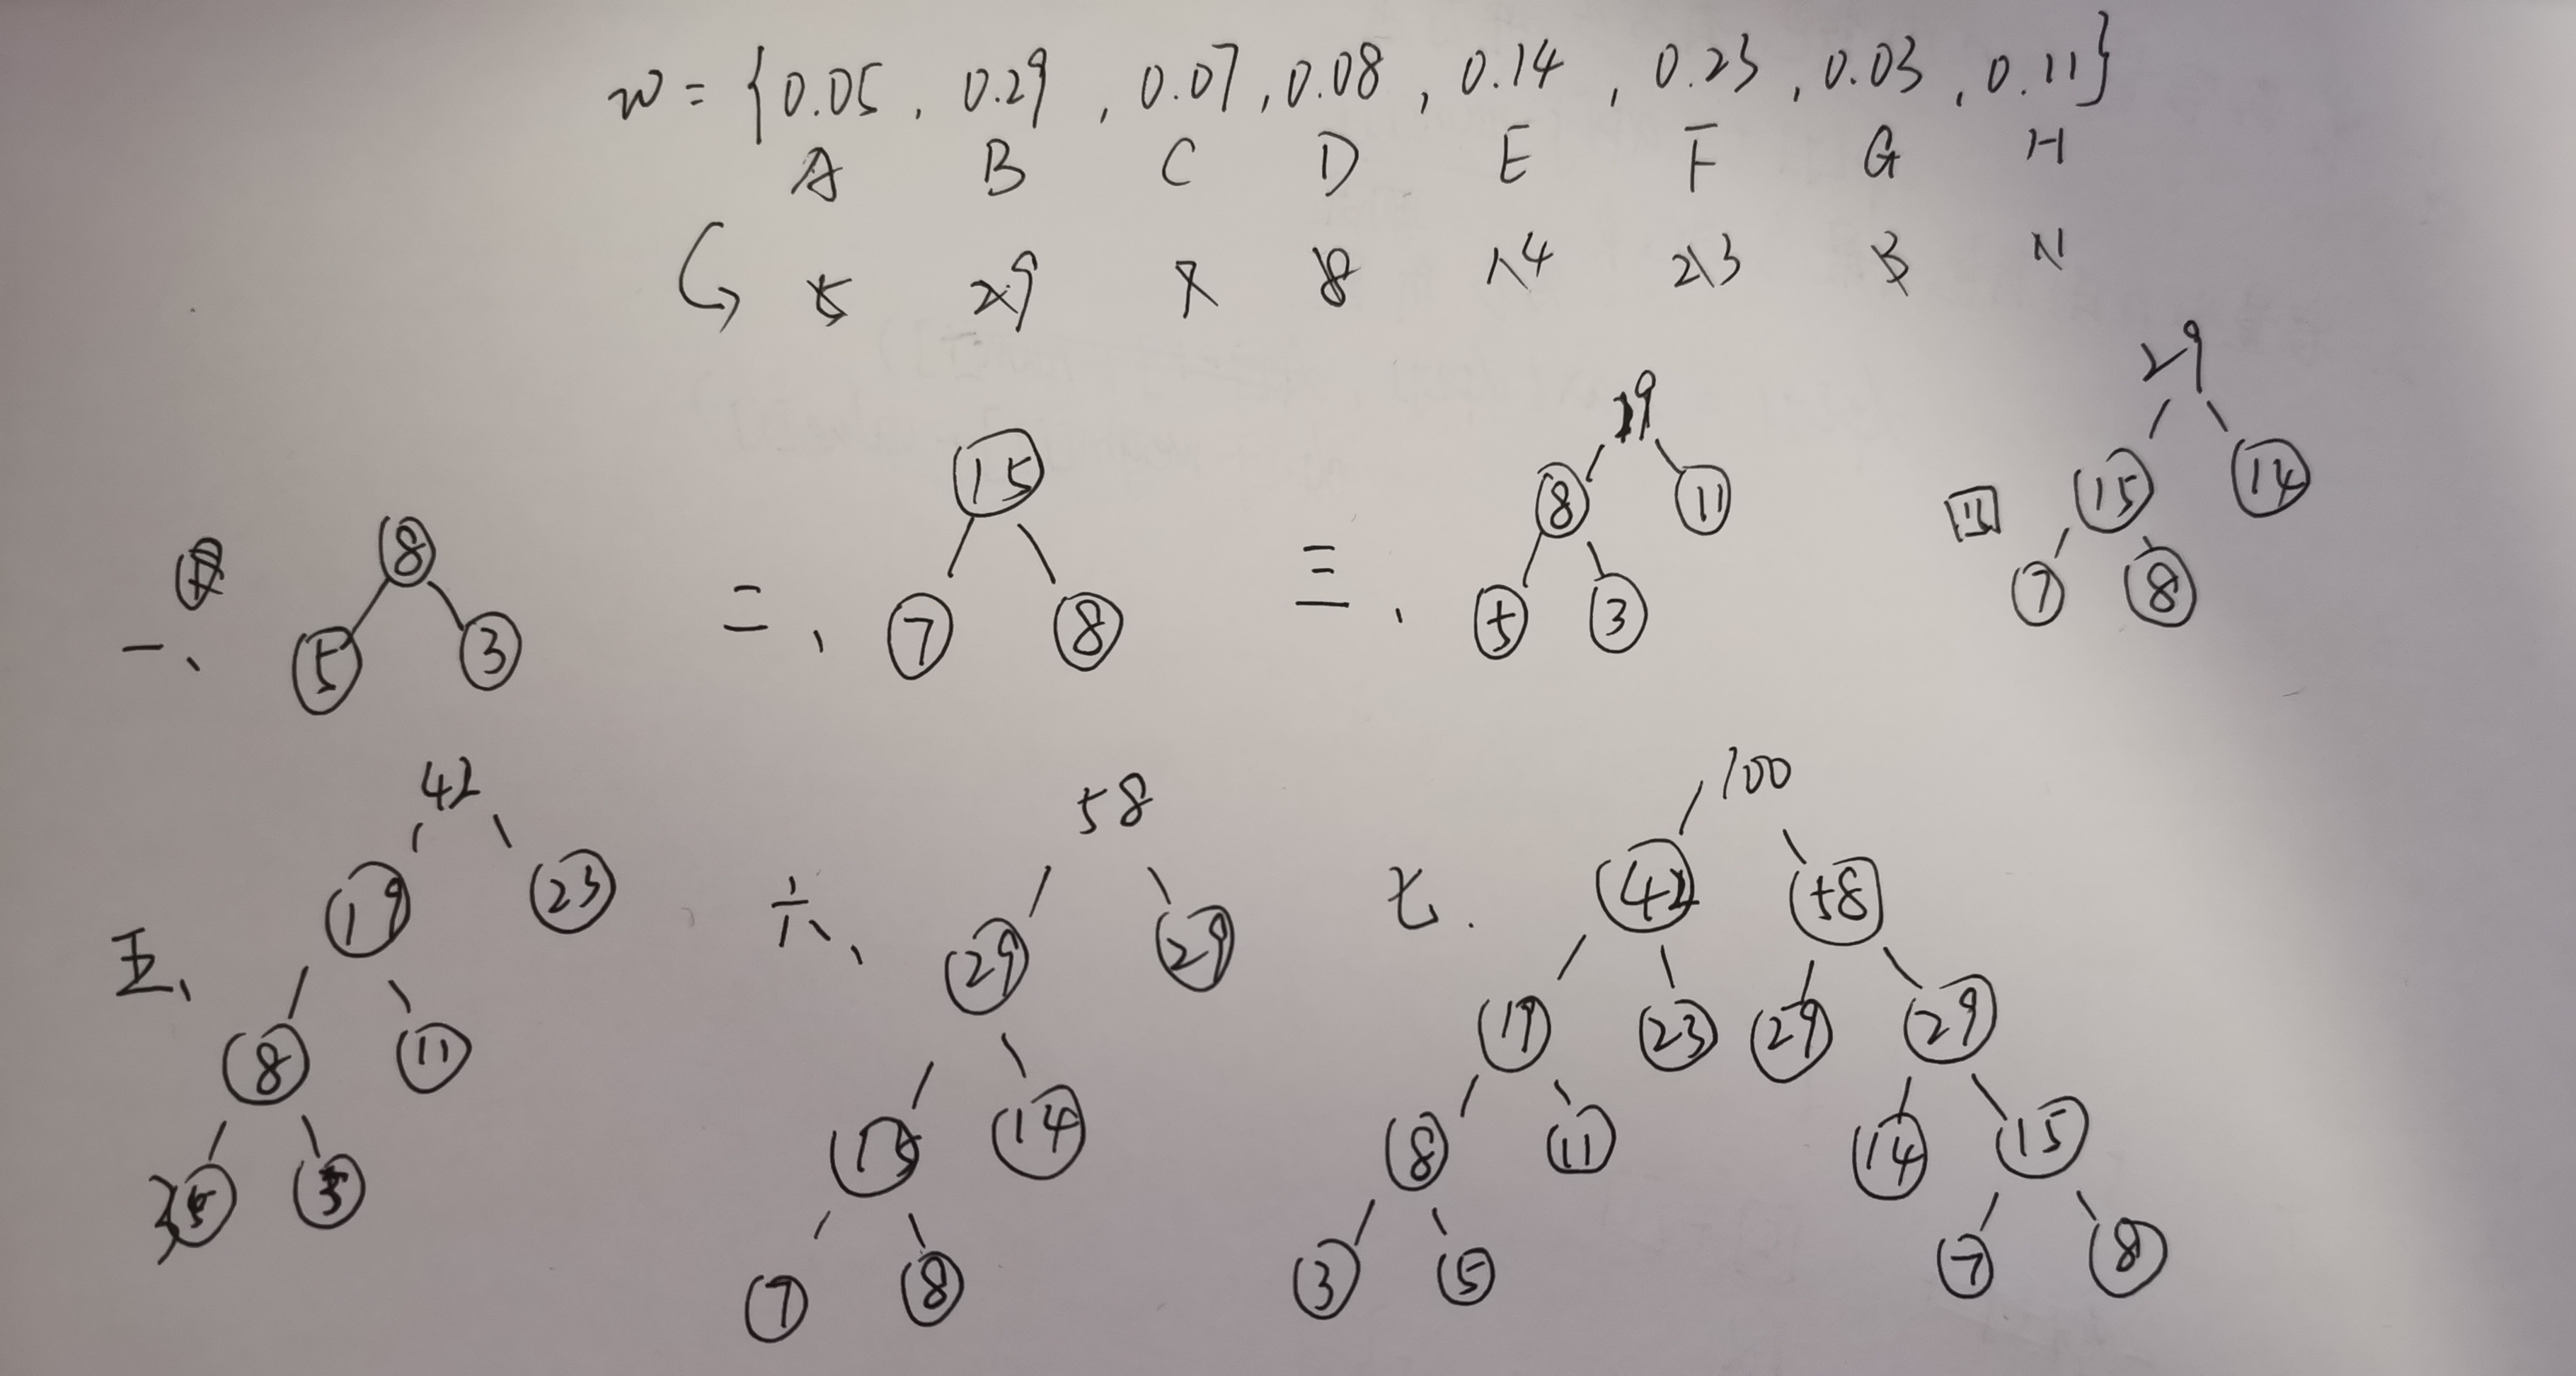 w = {0.05, 0.29, 0.07, 0.08, 0.14, 0.23, 0.03, 0.11}
A B C D E F G H
5 29 7 8 14 23 3 11
一、 8
5 3
二、 15
7 8
三、 19
8 11
5 3
四 29
15 14
7 8
五、 42
19 23
8 11
5 3
六、 58
29 29
15 14
7 8
七. 100
42 58
19 23 29 29
8 11 14 15
3 5 7 8